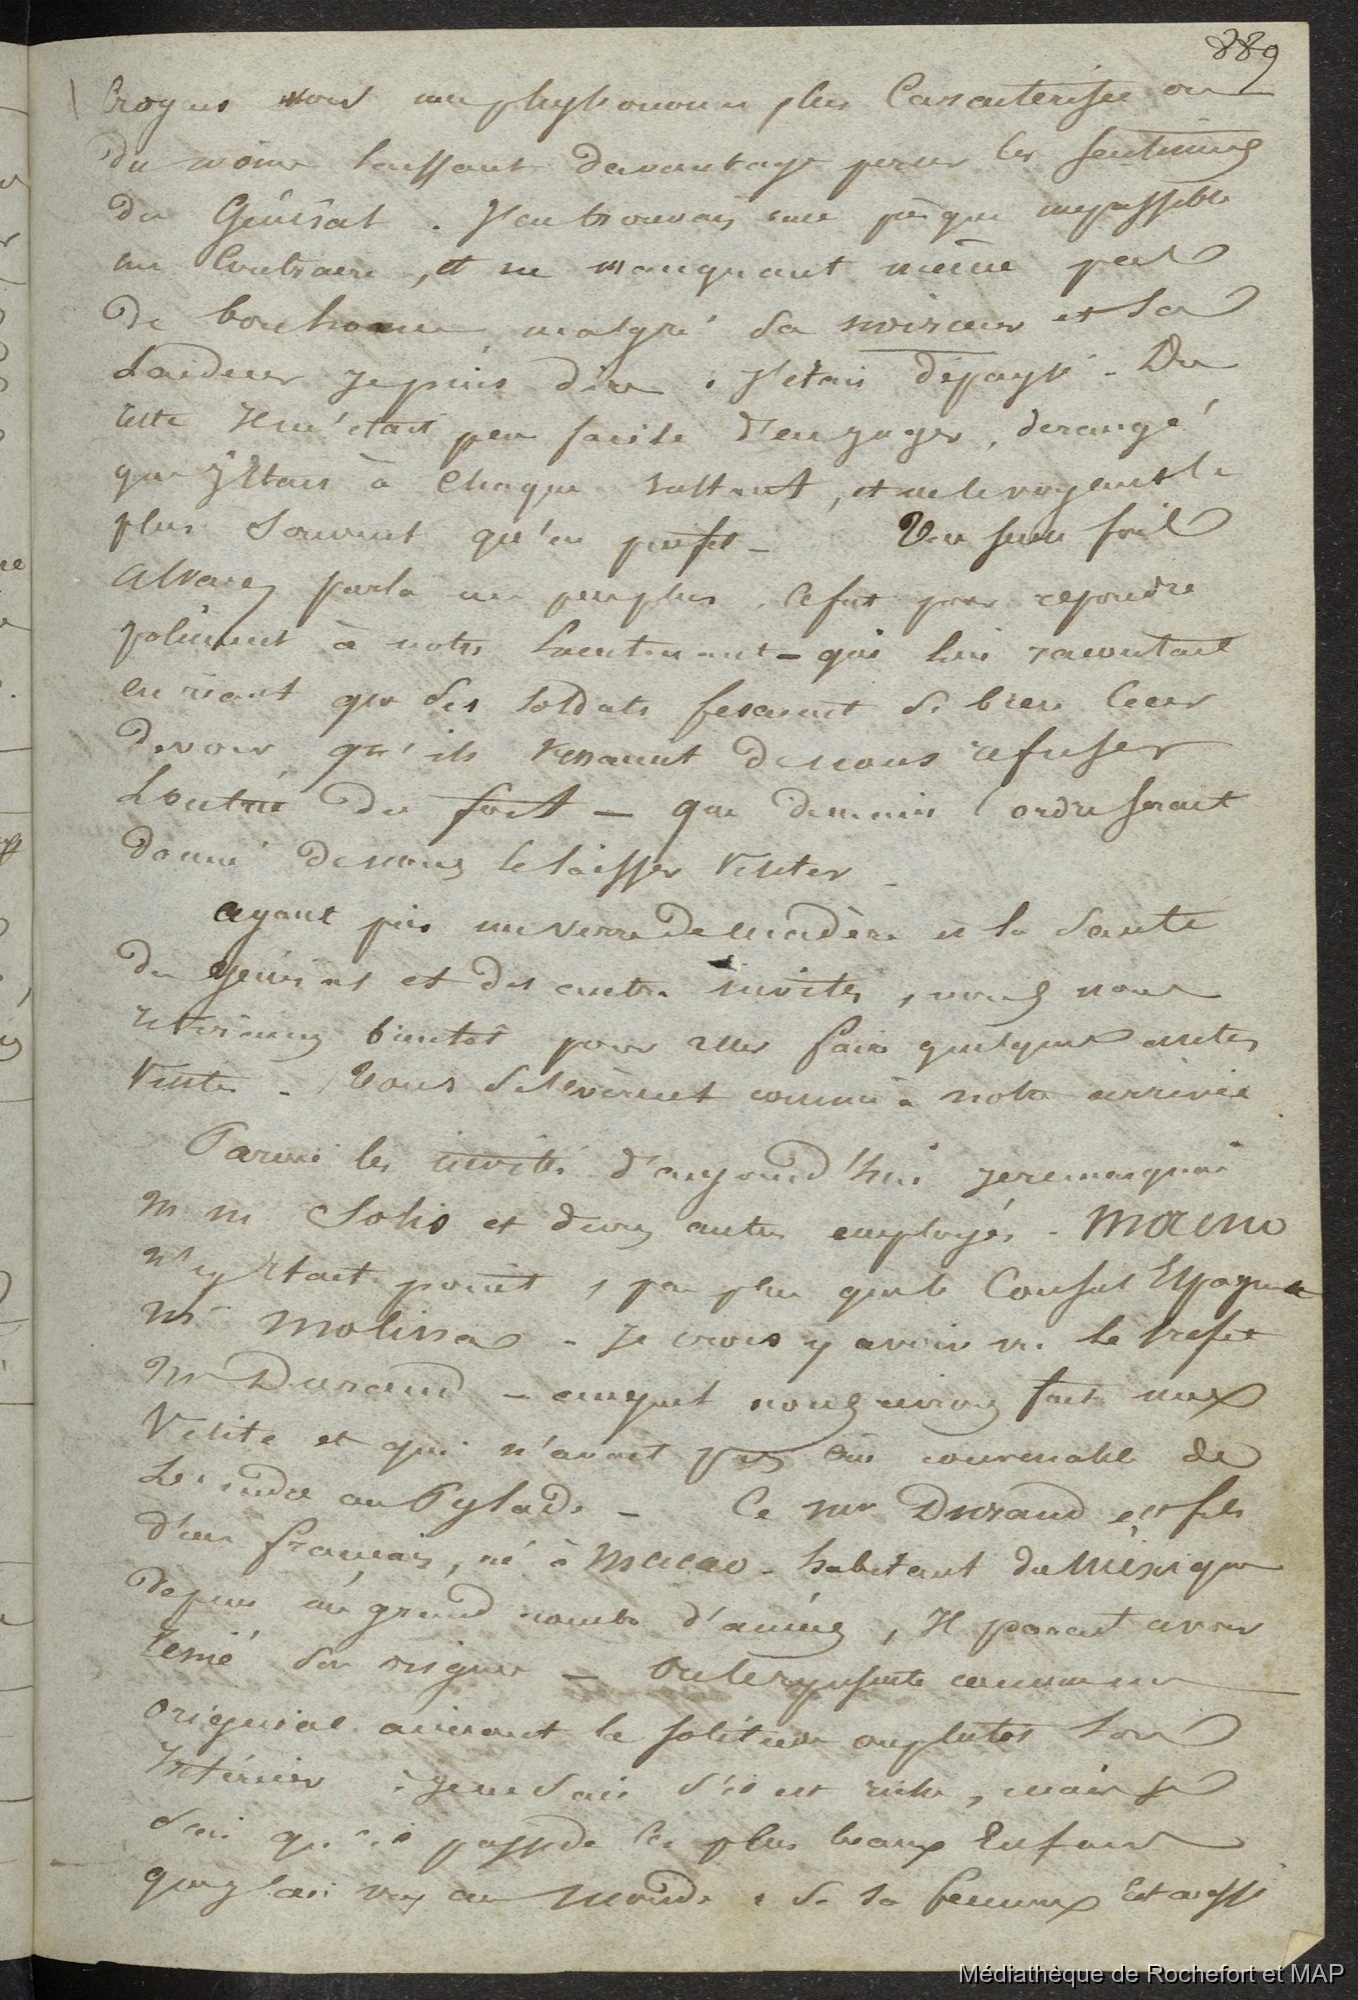 889
Croyais voir une physionomie plus Caractérisée ou
du moins laissant davantage percer les sentimens
du Général. J'en trouvais une presque impassible
au Contraire, et ne manquant même pas
de bonhomie, malgré sa noirceur et sa
Laideur je puis dire. J'étais dépaysé - Du
reste Il m'était peu facile d'en juger, derangé
que j'Etais à Chaque Instant, et ne le voyant le
plus Souvent qu'en profil - Une seule fois
Alvarez parla un peu plus. Ce fut pour repondre
poliment à notre Lieutenant - qui lui racontait
en riant que ses soldats fesaient si bien leur
devoir qu'ils venaient de nous refuser
L'entrée du fort - que demain l'ordre serait
donné de nous le laisser visiter -
ayant pris un verre de madère à la Santé
du général et des autres invités, nous nous
retirames bientôt pour aller faire quelques autres
Visites. Tous se levèrent comme à notre arrivée
Parmi les invités d'aujourd'hui je remarquai
M m Solis et deux autres employés.
n'y Etait point, pas plus que le Consul Espagnol
Mr Molina - Je crois y avoir vu le Prefet
Mr Durand - auquel nous avions fait une
Visite et qui n'avait pas cru convenable de
Le rendre au Pylade - Ce mr Durand est fils
d'un français, né à Macao - habitant du Mexique
depuis un grand nombre d'années, Il parait avoir
renié son origine - On le represente comme un
original aimant la solitude ou plutot son
Intérieur. je ne Sais s'il est riche, mais je
Sais qu'il possede les plus beaux Enfans
que j'aie vus au monde. Si sa femme Est aussi
Médiathèque de Rochefort et MAP